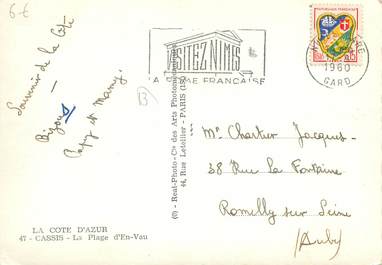 6€
VISITEZ NIMES
LA ROME FRANÇAISE
REPUBLIQUE FRANÇAISE
1960
GARD
B)
Souvenir de la Côte
Bizous
M. Chartier Jacques.
38 Rue La Fontaine
Romilly sur Seine
(Aube)
(O) - Real-Photo - Cie des Arts Photomécaniques
44, Rue Letellier - PARIS (15e)
LA COTE D'AZUR
47 - CASSIS - La Plage d'En-Vau